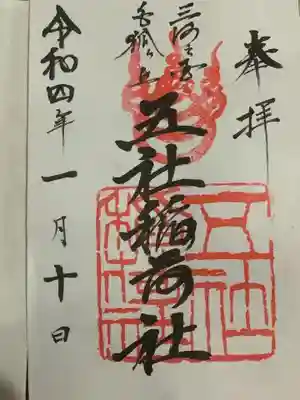 奉拝
三河
五社稲荷社
令和四年一月十日